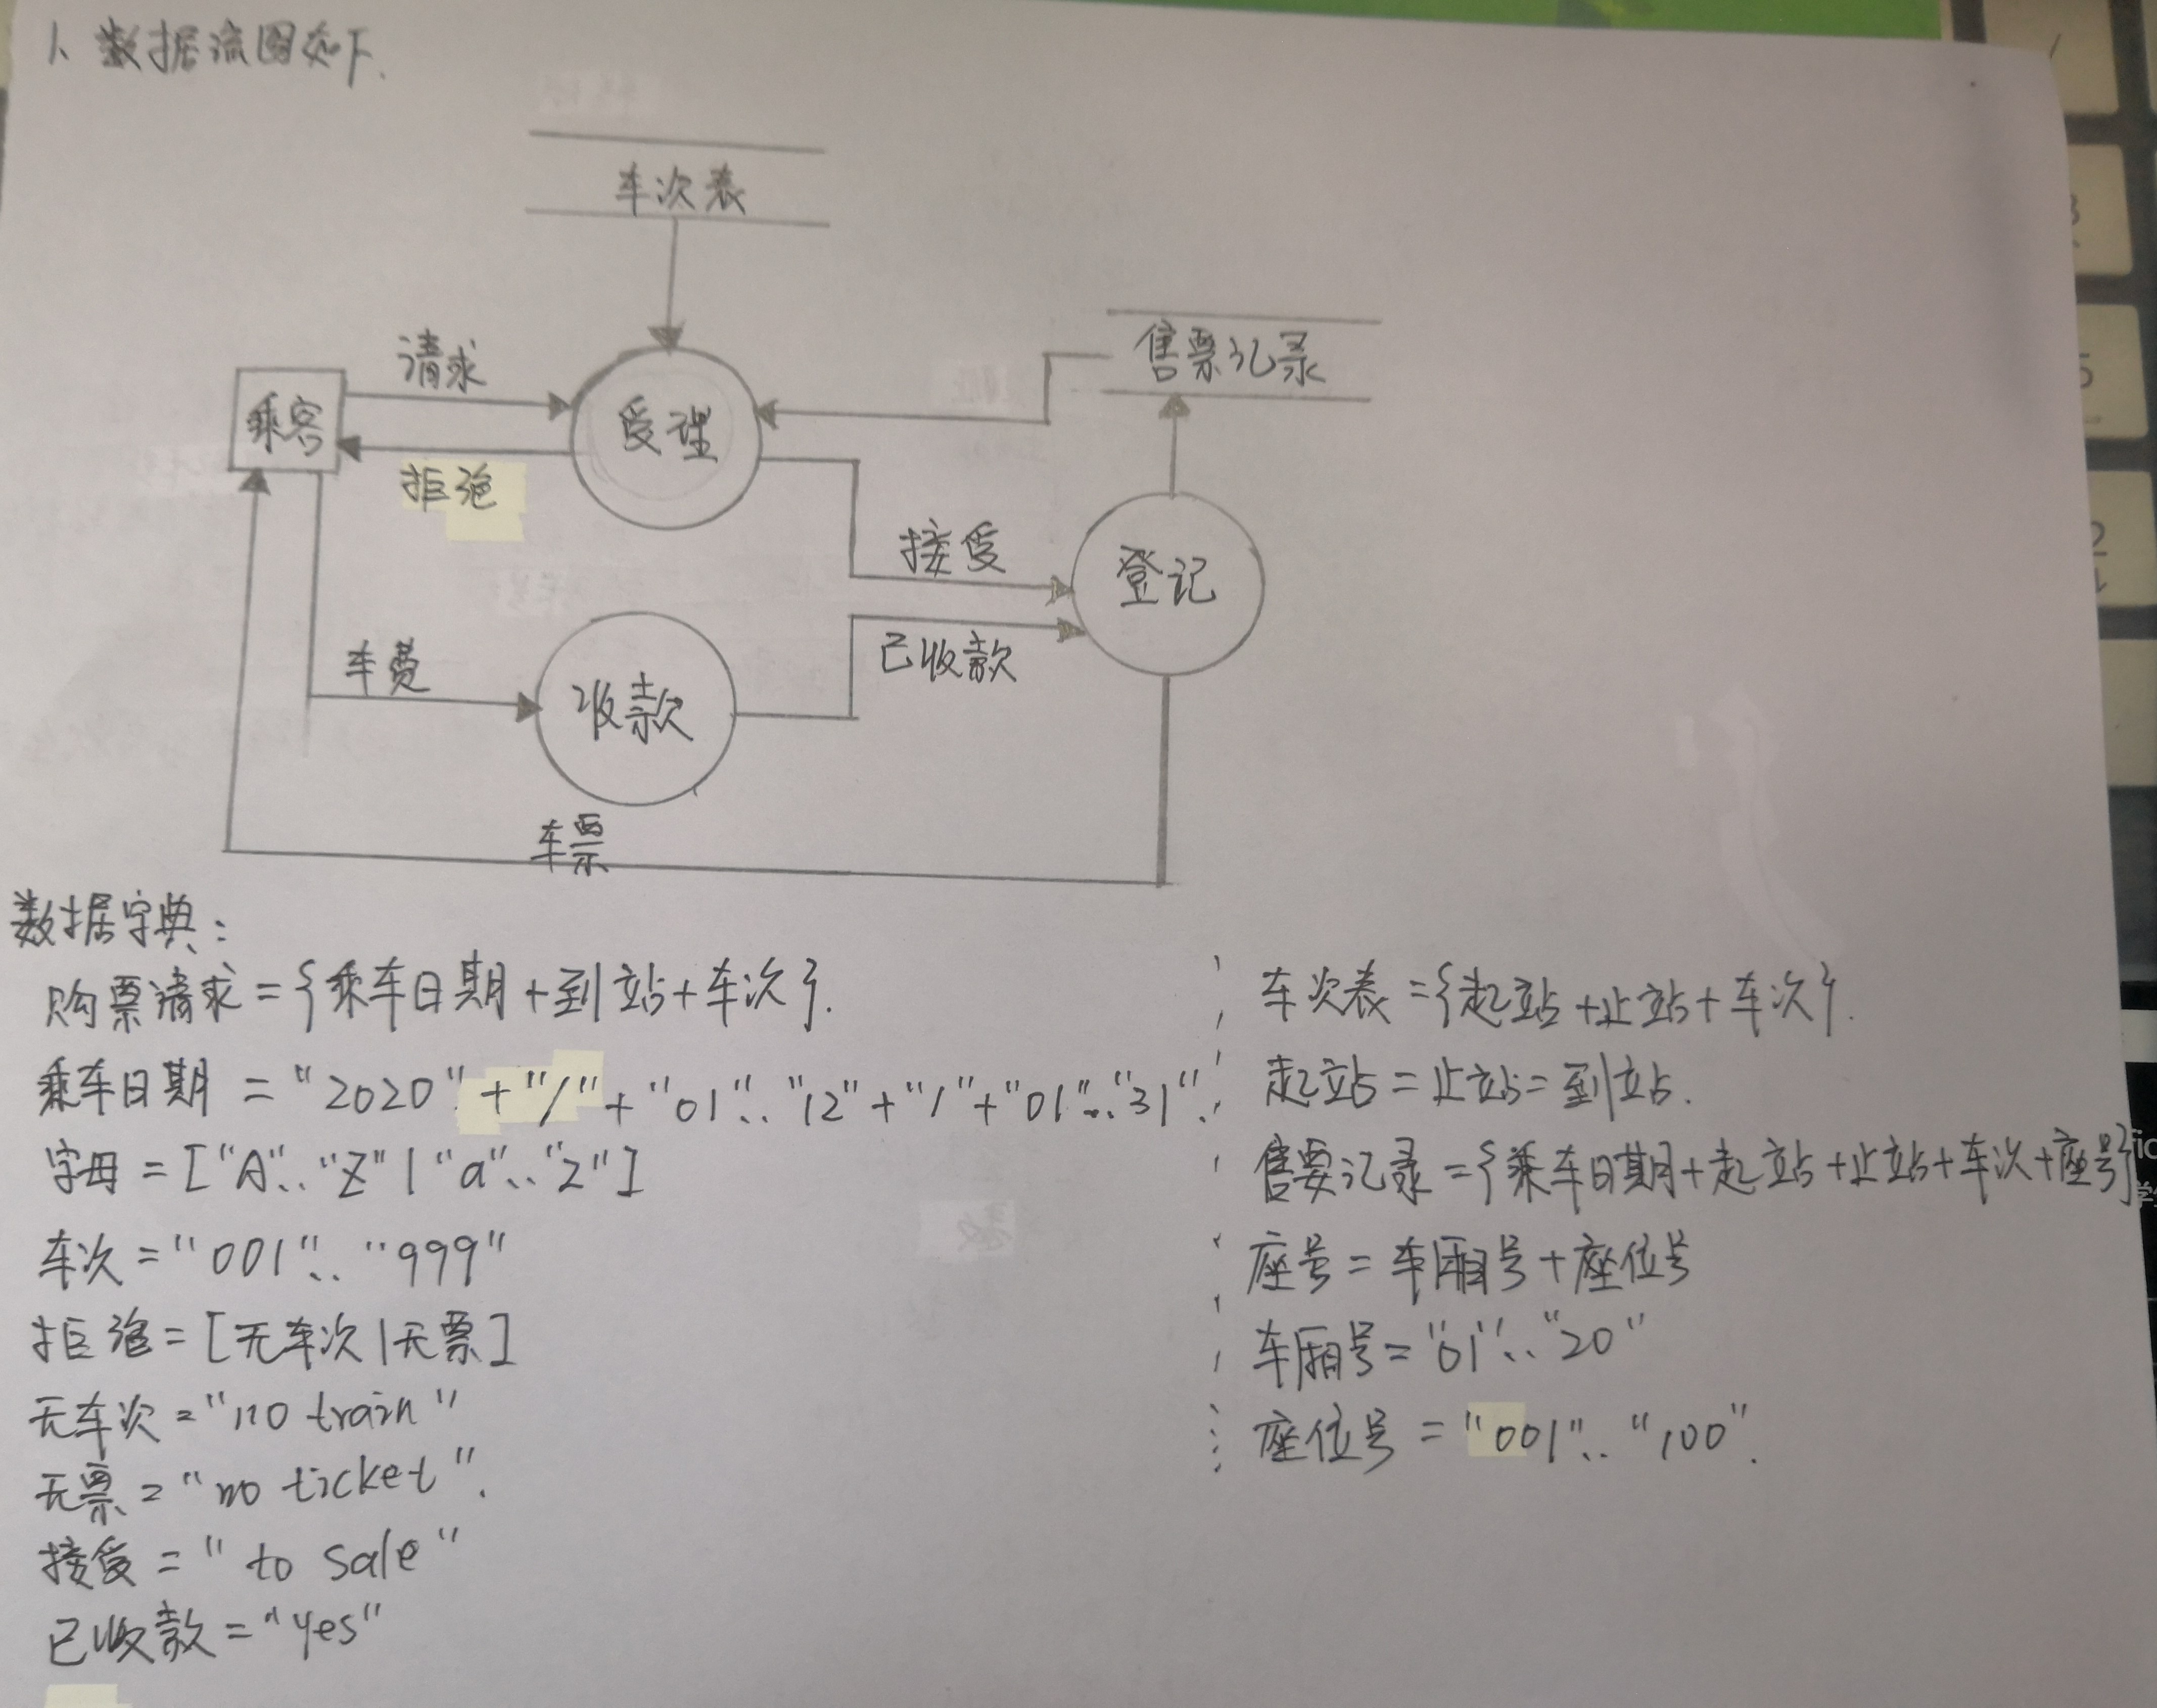 1、数据流图如下.
车次表
售票记录
请求
乘客
受理
拒绝
接受
登记
已收款
车费
收款
车票
数据字典：
购票请求={乘车日期+到站+车次}.
乘车日期="2020"+"/"+"01".."12"+"/"+"01".."31".
字母=["A".."Z"|"a".."z"]
车次="001".."999"
拒绝=[无车次|无票]
无车次="no train"
无票="no ticket".
接受="to sale"
已收款="yes"
车次表={起站+止站+车次}.
起站=止站=到站.
售票记录={乘车日期+起站+止站+车次+座号}
座号=车厢号+座位号
车厢号="01".."20"
座位号="001".."100".